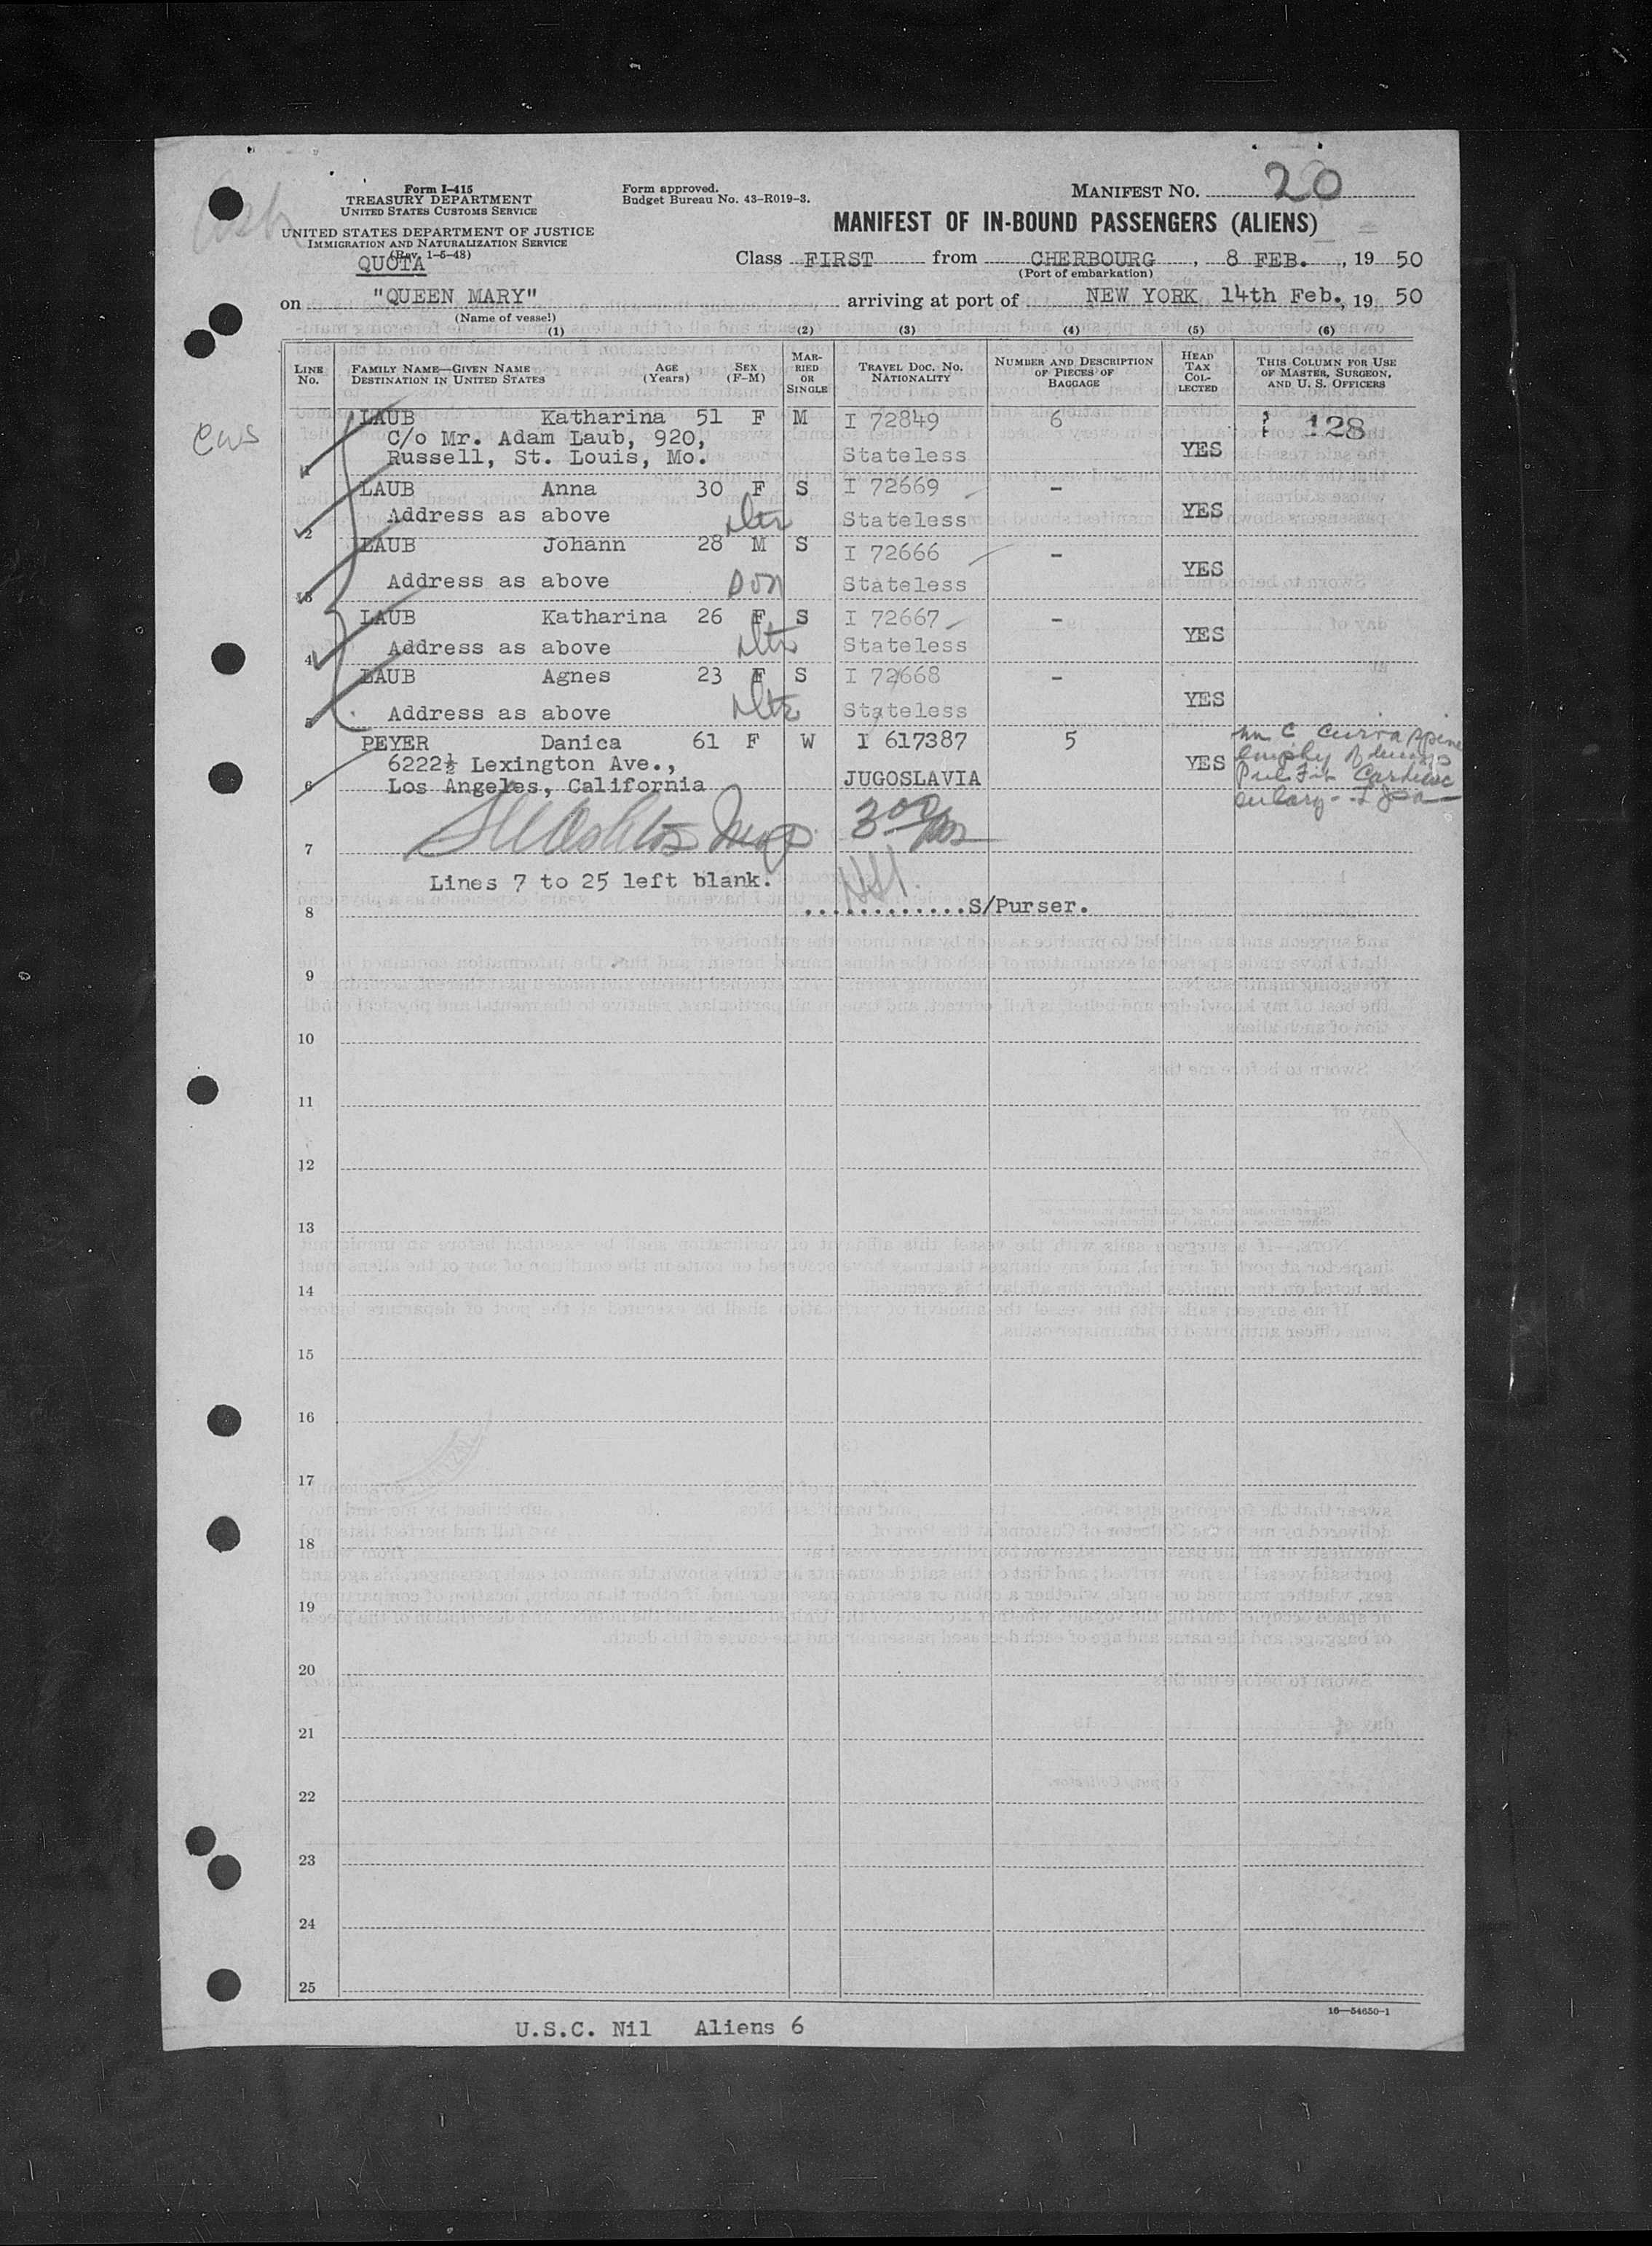 20
Form I-415
TREASURY DEPARTMENT
UNITED STATES CUSTOMS SERVICE
UNITED STATES DEPARTMENT OF JUSTICE
IMMIGRATION AND NATURALIZATION SERVICE
(Rev. 1-5-48)
QUOTA
Form approved.
Budget Bureau No. 43-R019-3.
MANIFEST NO.
MANIFEST OF IN-BOUND PASSENGERS (ALIENS)
Class FIRST from CHERBOURG, 8 FEB., 19 50
(Port of embarkation)
on "QUEEN MARY" arriving at port of NEW YORK 14th Feb., 19 50
(Name of vessel)
(1) (2) (3) (4) (5) (6)
LINE No. FAMILY NAME—GIVEN NAME DESTINATION IN UNITED STATES AGE (Years) SEX (F-M) MARRIED OR SINGLE TRAVEL DOC. NO. NATIONALITY NUMBER AND DESCRIPTION OF PIECES OF BAGGAGE HEAD TAX COLLECTED THIS COLUMN FOR USE OF MASTER, SURGEON, AND U. S. OFFICERS
LAUB Katharina 51 F M I 72849 6 128
C/o Mr. Adam Laub, 920,
1 Russell, St. Louis, Mo. Stateless YES
LAUB Anna 30 F S I 72669 -
2 Address as above dtr Stateless YES
LAUB Johann 28 M S I 72666 -
3 Address as above son Stateless YES
LAUB Katharina 26 F S I 72667 -
4 Address as above dtr Stateless YES
LAUB Agnes 23 F S I 72668 -
5 Address as above dtr Stateless YES
PEYER Danica 61 F W I 617387 5
6222½ Lexington Ave., YES
6 Los Angeles, California JUGOSLAVIA
7
Lines 7 to 25 left blank.
8 .............S/Purser.
9
10
11
12
13
14
15
16
17
18
19
20
21
22
23
24
25
16—54650-1
U.S.C. Nil Aliens 6